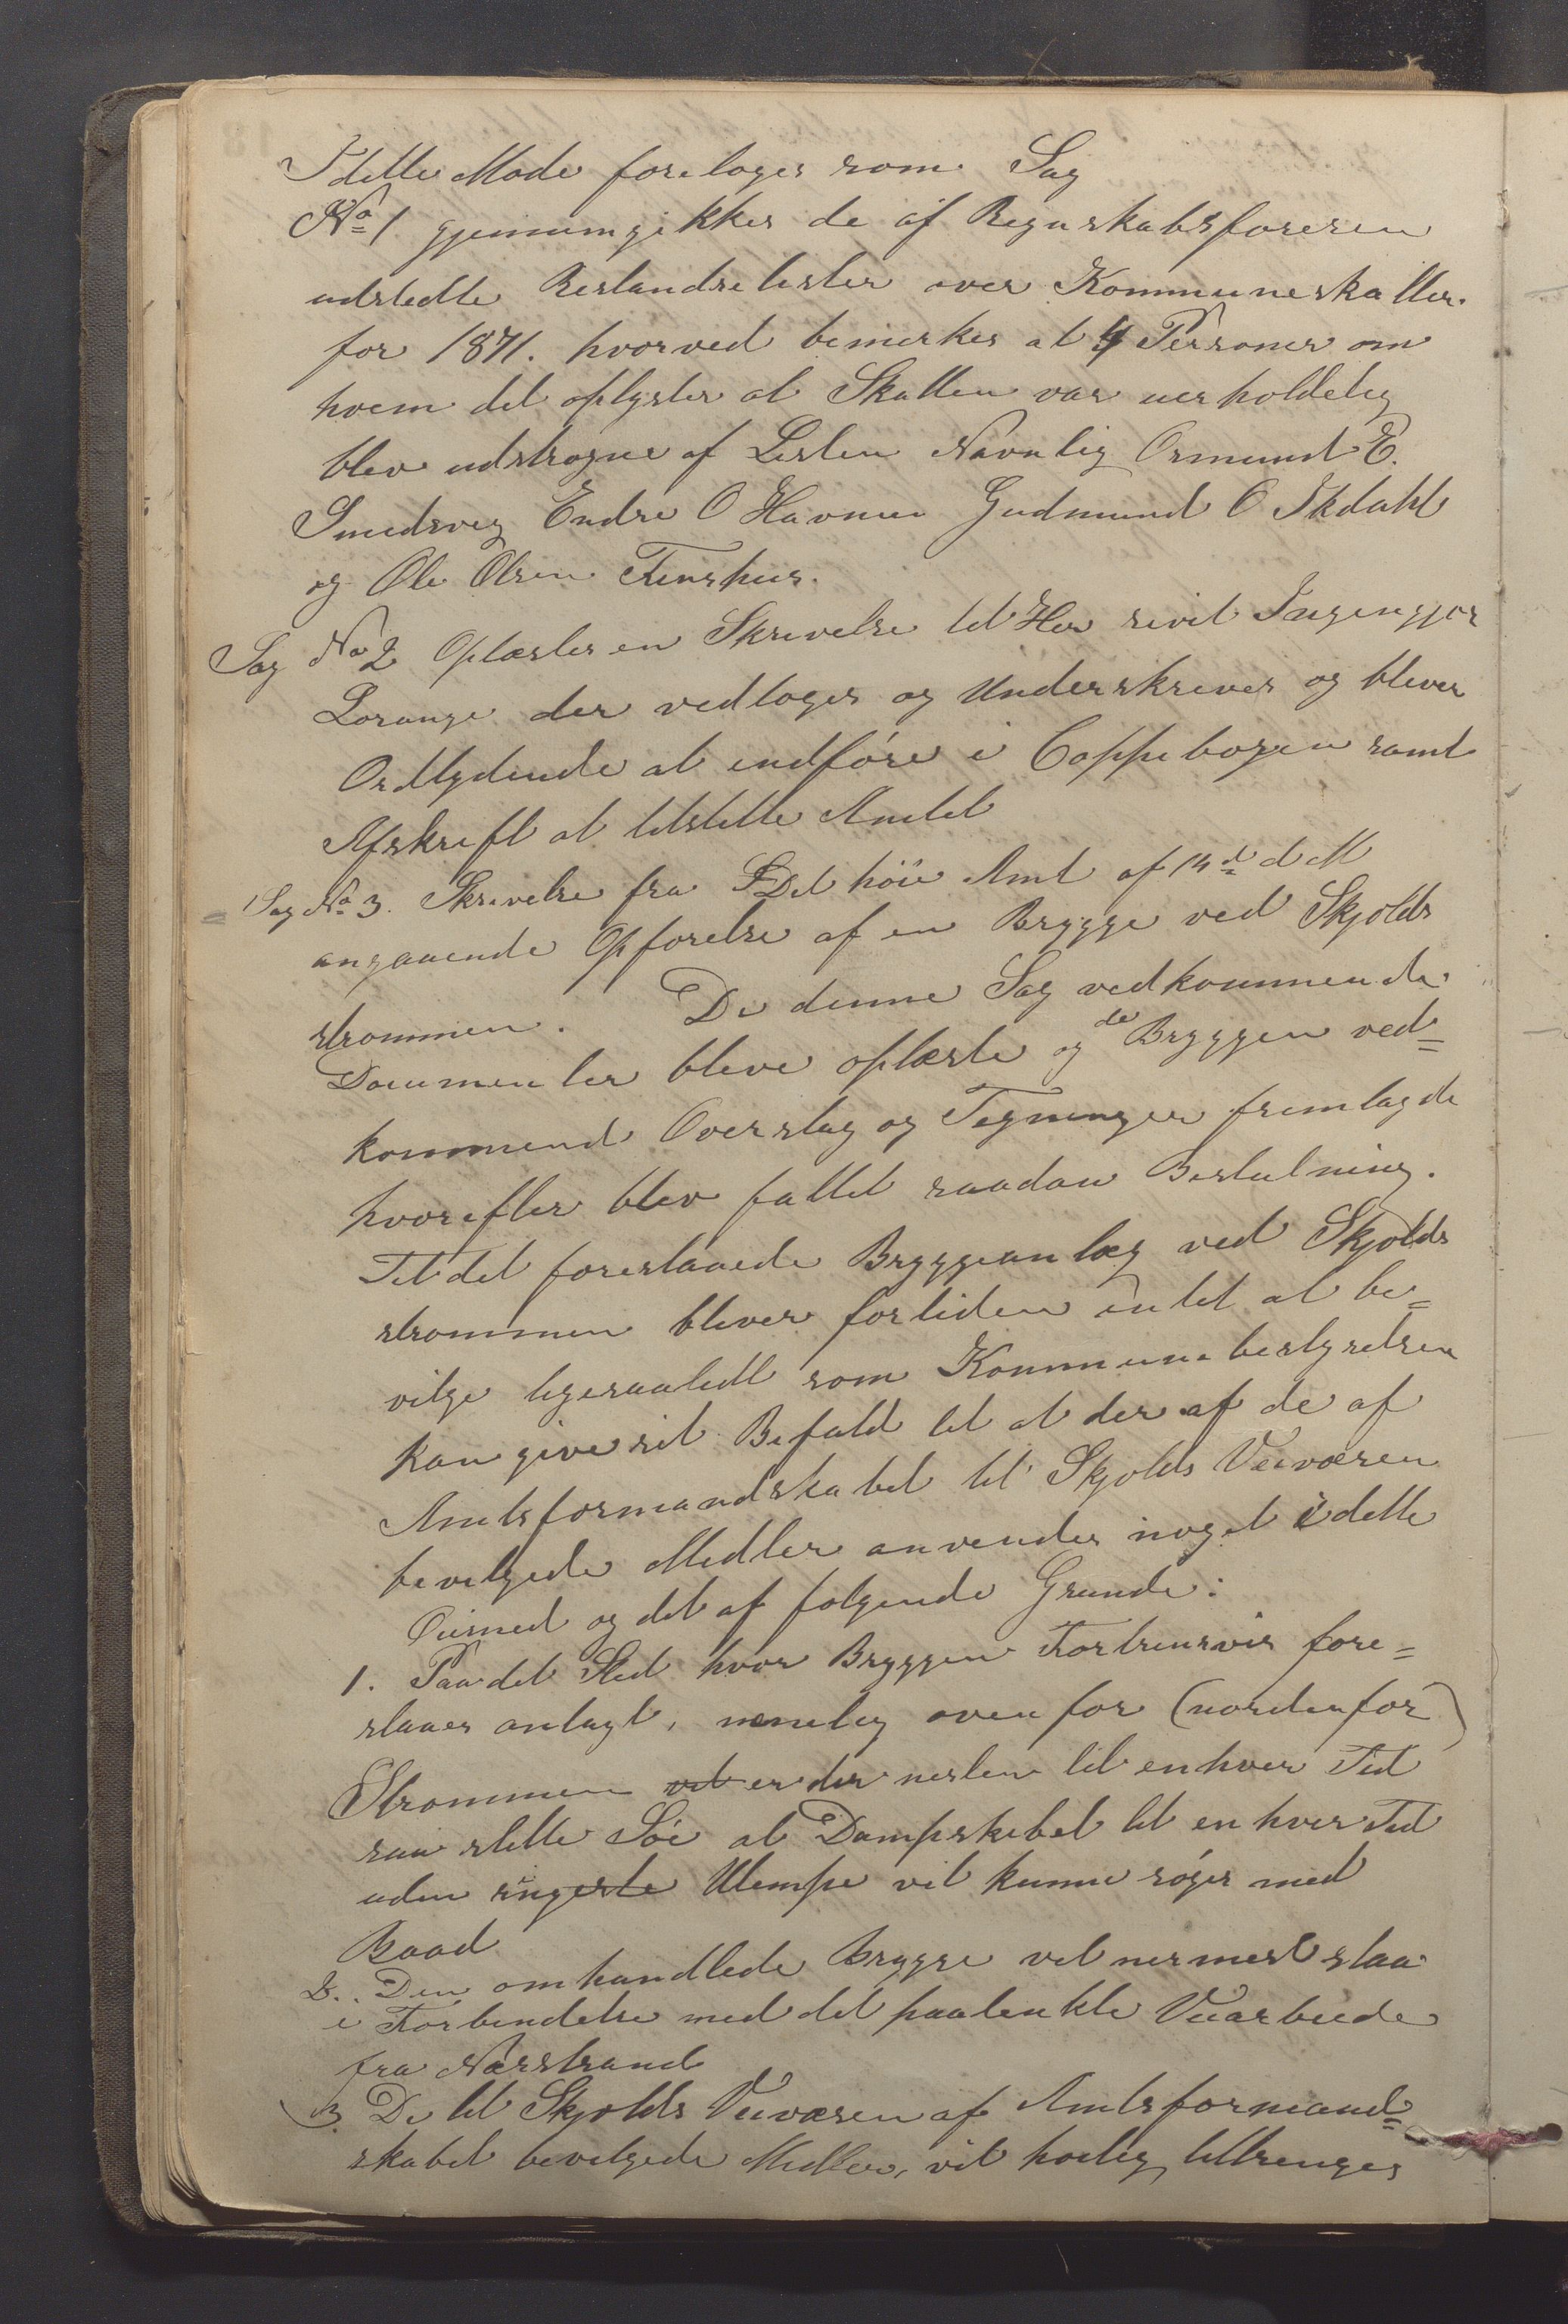 I dette Møde foretoges som Sag
No 1 gjennemgikkes de af Regnskabsføreren
udstedte Restandselister over Kommuneskatter
for 1871. hvorved bemerkes at 4 Personer om
hvem det oplystes at Skatten var uerholdelig
blev udstrøgne af Listen Navnlig Osmund E.
Smedsvig Endre O Havnen Gudmund O Ikdahl
og Ole Olsen Tinshus.
Sag No 2 Oplæstes en Skrivelse til Her sivil Ingengjør
Lorange der vedtoges og Underskrives og bliver
Ordlydende at indføre i Coppibogen samt
Afskrift at tilstille Amtet
Sag No 3. Skrivelse fra Det høie Amt af 14de d M
angaaende Opførelse af en Brygge ved Skjolds
strømmen. De denne Sag vedkommende
Documenter bleve oplæste og de Bryggen ved=
kommend Overslag og Tegninger fremlagde
hvorefter blev fattet saadan Beslutning.
Til det foreslaaede Bryggeanlæg ved Skjolds
strømmen bliver fortiden intet at be=
vilge ligesaalidt som Kommunebestyrelsen
kan give sit Bifald til at der af de af
Amtsformandskabet til Skjolds Veivæsen
bevilgede Midler anvendes noget i dette
Øiemed og det af følgende Grunde:
1. Paa det Sted hvor Bryggen Fortrinsvis fore=
slaaes anlagt, nemlig ovenfor (nordenfor)
Strømmen vil er der nesten til enhver Tid
saa stille Søe at Dampskibet til en hver Tid
uden ringeste Ulempe vil kunne søges med
Baad
2. Den omhandlede Brygge vil nermest staa
i Forbindelse med det paatenkte Veiarbeide
fra Nærstrand
3. De til Skjolds Veivæsen af Amtsformand=
skabet bevilgede Midler, vil høilig tiltrenges